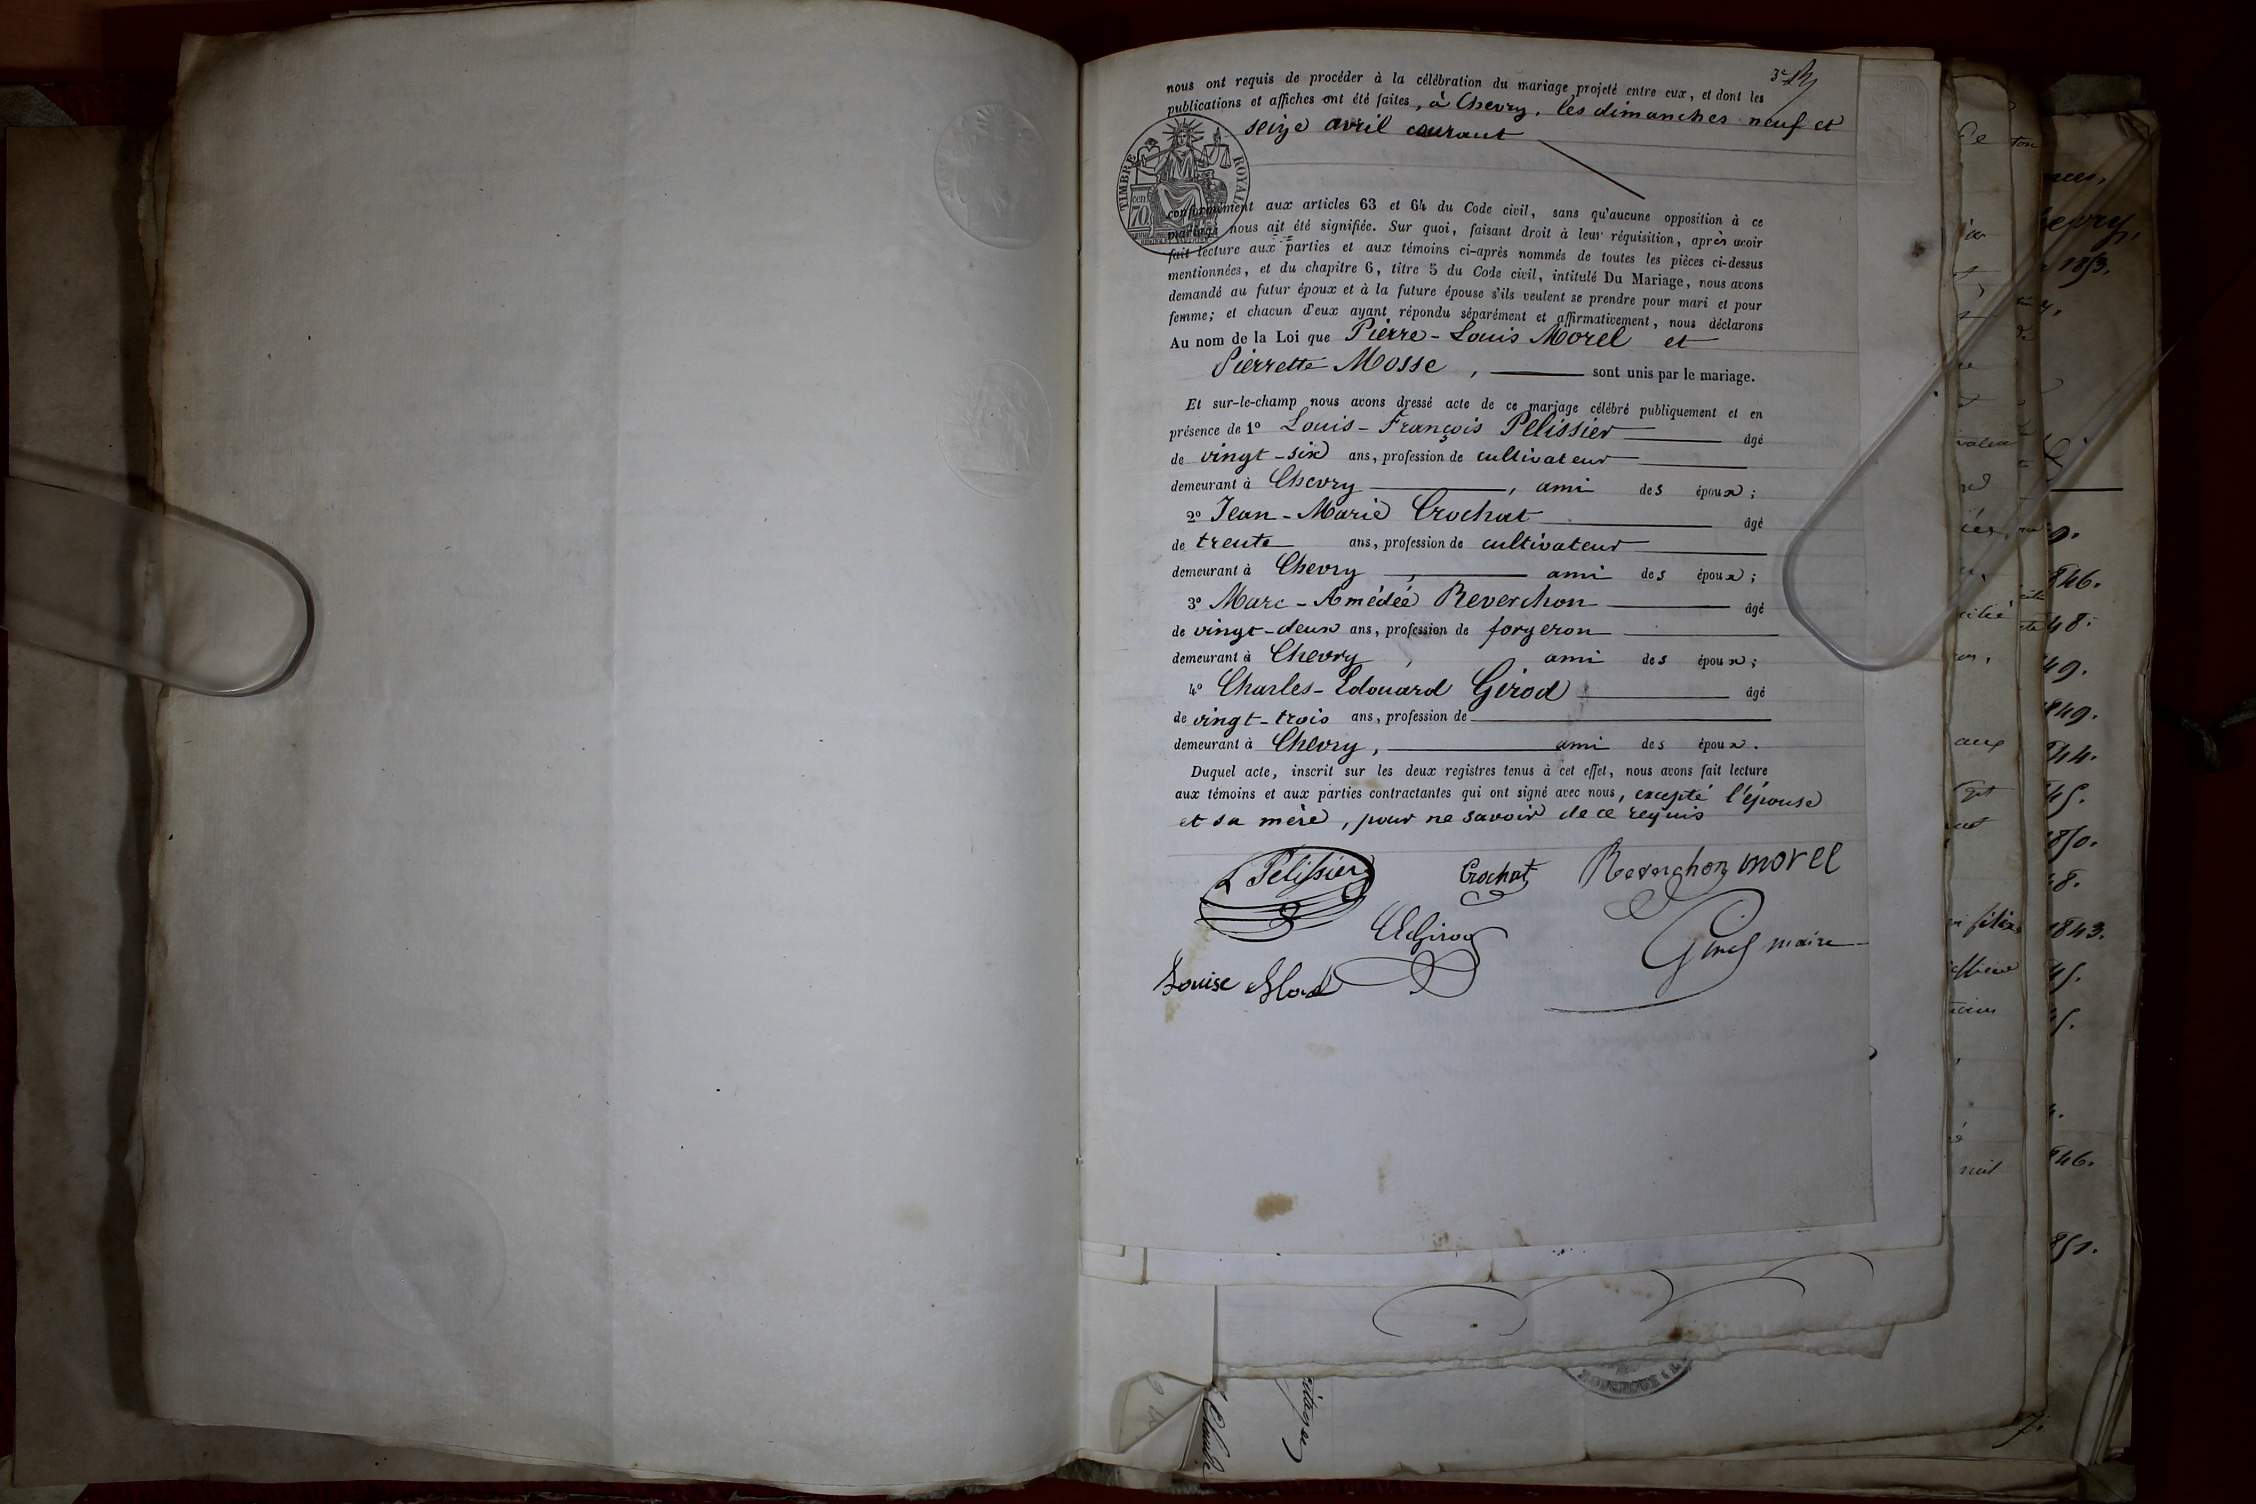 3e
nous ont requis de procéder à la célébration du mariage projeté entre eux, et dont les
publications et affiches ont été faites, à Chevry, les dimanches neuf et
seize avril courant
TIMBRE ROYAL
70
conformément aux articles 63 et 64 du Code civil, sans qu'aucune opposition à ce
mariage nous ait été signifiée. Sur quoi, faisant droit à leur réquisition, après avoir
fait lecture aux parties et aux témoins ci-après nommés de toutes les pièces ci-dessus
mentionnées, et du chapitre 6, titre 5 du Code civil, intitulé Du Mariage, nous avons
demandé au futur époux et à la future épouse s'ils veulent se prendre pour mari et pour
femme; et chacun d'eux ayant répondu séparément et affirmativement, nous déclarons
Au nom de la Loi que Pierre-Louis Morel et
Pierrette Mosse, sont unis par le mariage.
Et sur-le-champ nous avons dressé acte de ce mariage célébré publiquement et en
présence de 1o Louis-François Pelissier âgé
de vingt-six ans, profession de cultivateur
demeurant à Chevry, ami des époux;
2o Jean-Marie Crochat âgé
de trente ans, profession de cultivateur
demeurant à Chevry, ami des époux;
3o Marc-Amédéé Reverchon âgé
de vingt-deux ans, profession de forgeron
demeurant à Chevry, ami des époux;
4o Charles-Edouard Girod âgé
de vingt-trois ans, profession de
demeurant à Chevry, ami des époux.
Duquel acte, inscrit sur les deux registres tenus à cet effet, nous avons fait lecture
aux témoins et aux parties contractantes qui ont signé avec nous, excepté l'épouse
et sa mère, pour ne savoir de ce requis
Pelissier Crochat Reverchon morel
Girod maire
Louise